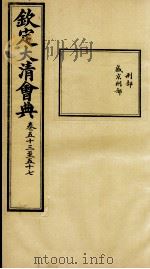 欽定大清會典
卷五十三至五十七
刑部
盛京刑部
mtoou.info
mtoou.info